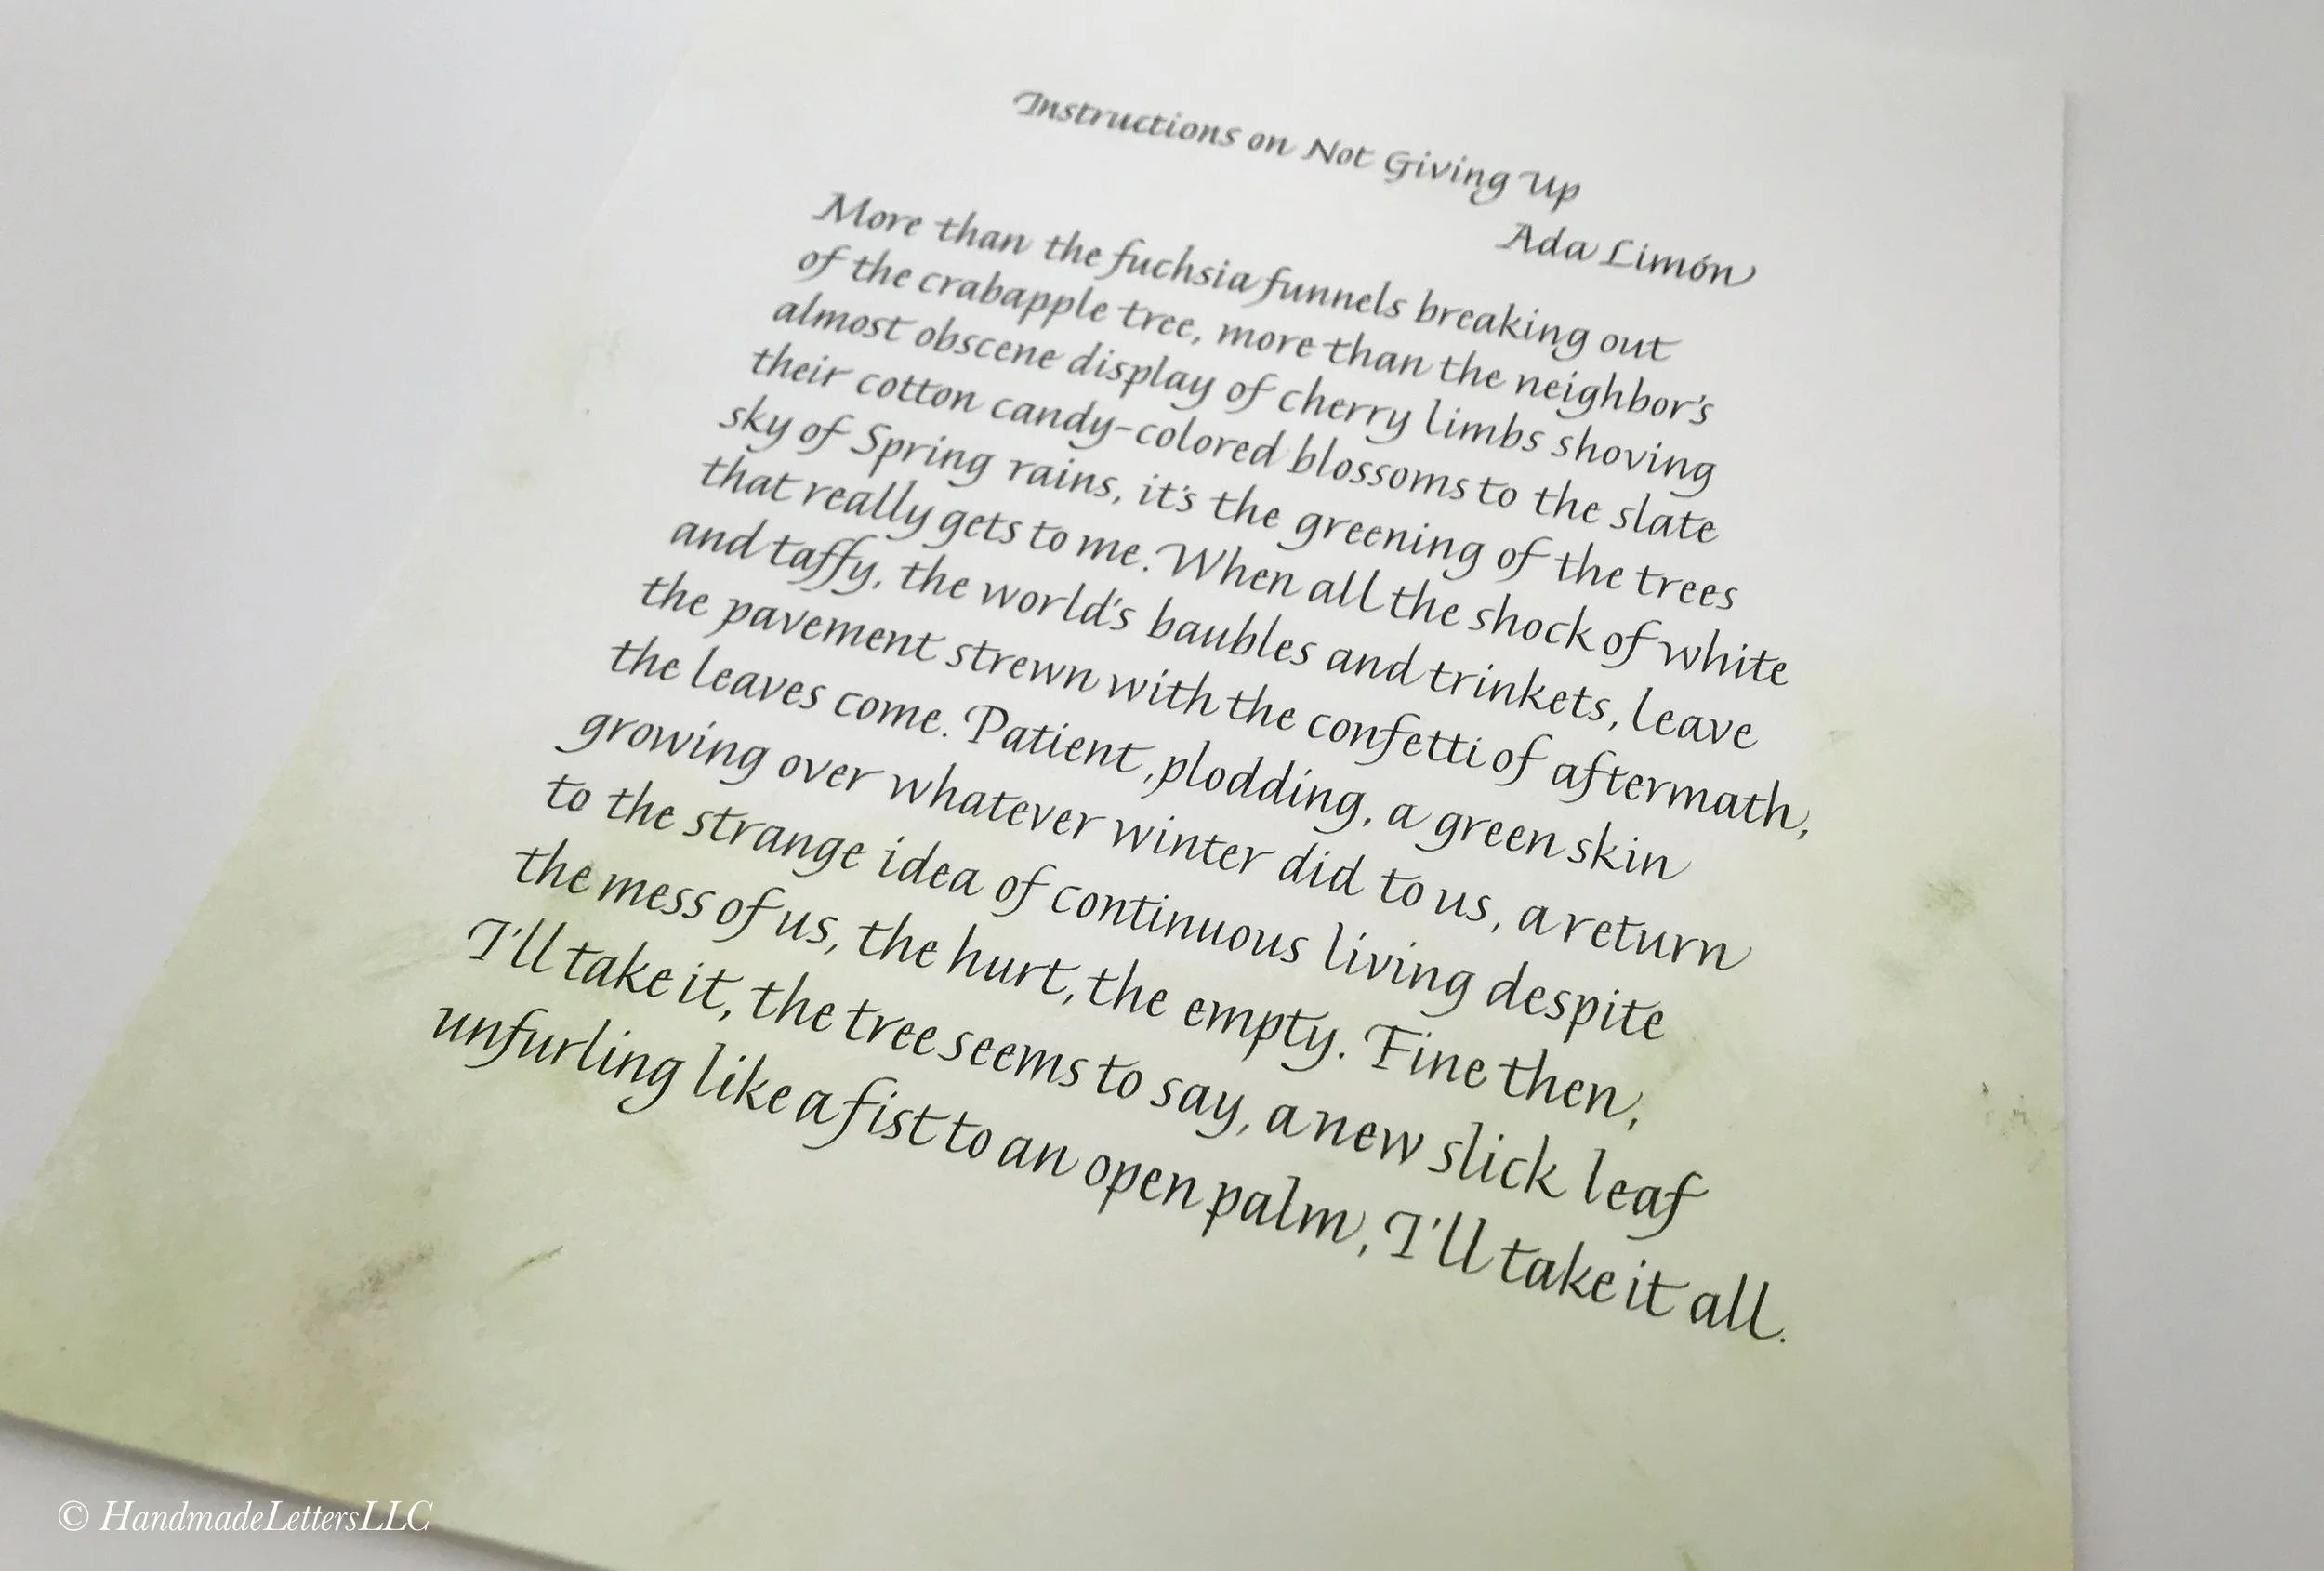 Instructions on Not Giving Up
Ada Limón
More than the fuchsia funnels breaking out
of the crabapple tree, more than the neighbor's
almost obscene display of cherry limbs shoving
their cotton candy-colored blossoms to the slate
sky of Spring rains, it's the greening of the trees
that really gets to me. When all the shock of white
and taffy, the world's baubles and trinkets, leave
the pavement strewn with the confetti of aftermath,
the leaves come. Patient, plodding, a green skin
growing over whatever winter did to us, a return
to the strange idea of continuous living despite
the mess of us, the hurt, the empty. Fine then,
I'll take it, the tree seems to say, a new slick leaf
unfurling like a fist to an open palm, I'll take it all.
© HandmadeLettersLLC